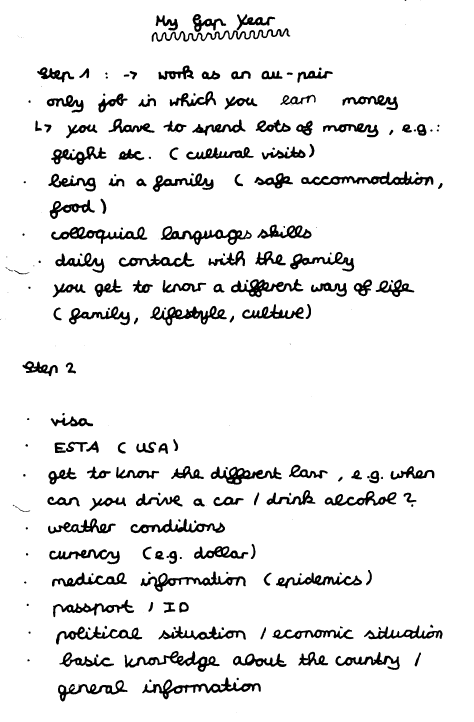 My Gap Year
Step 1 : -> work as an au-pair
· only job in which you earn money
↳ you have to spend lots of money, e.g.:
flight etc. (cultural visits)
· being in a family (safe accommodation,
food)
· colloquial languages skills
· daily contact with the family
· you get to know a different way of life
(family, lifestyle, culture)
Step 2
· visa
· ESTA (USA)
· get to know the different law, e.g. when
can you drive a car / drink alcohol?
· weather conditions
· currency (e.g. dollar)
· medical information (epidemics)
· passport / ID
· political situation / economic situation
· basic knowledge about the country /
general information